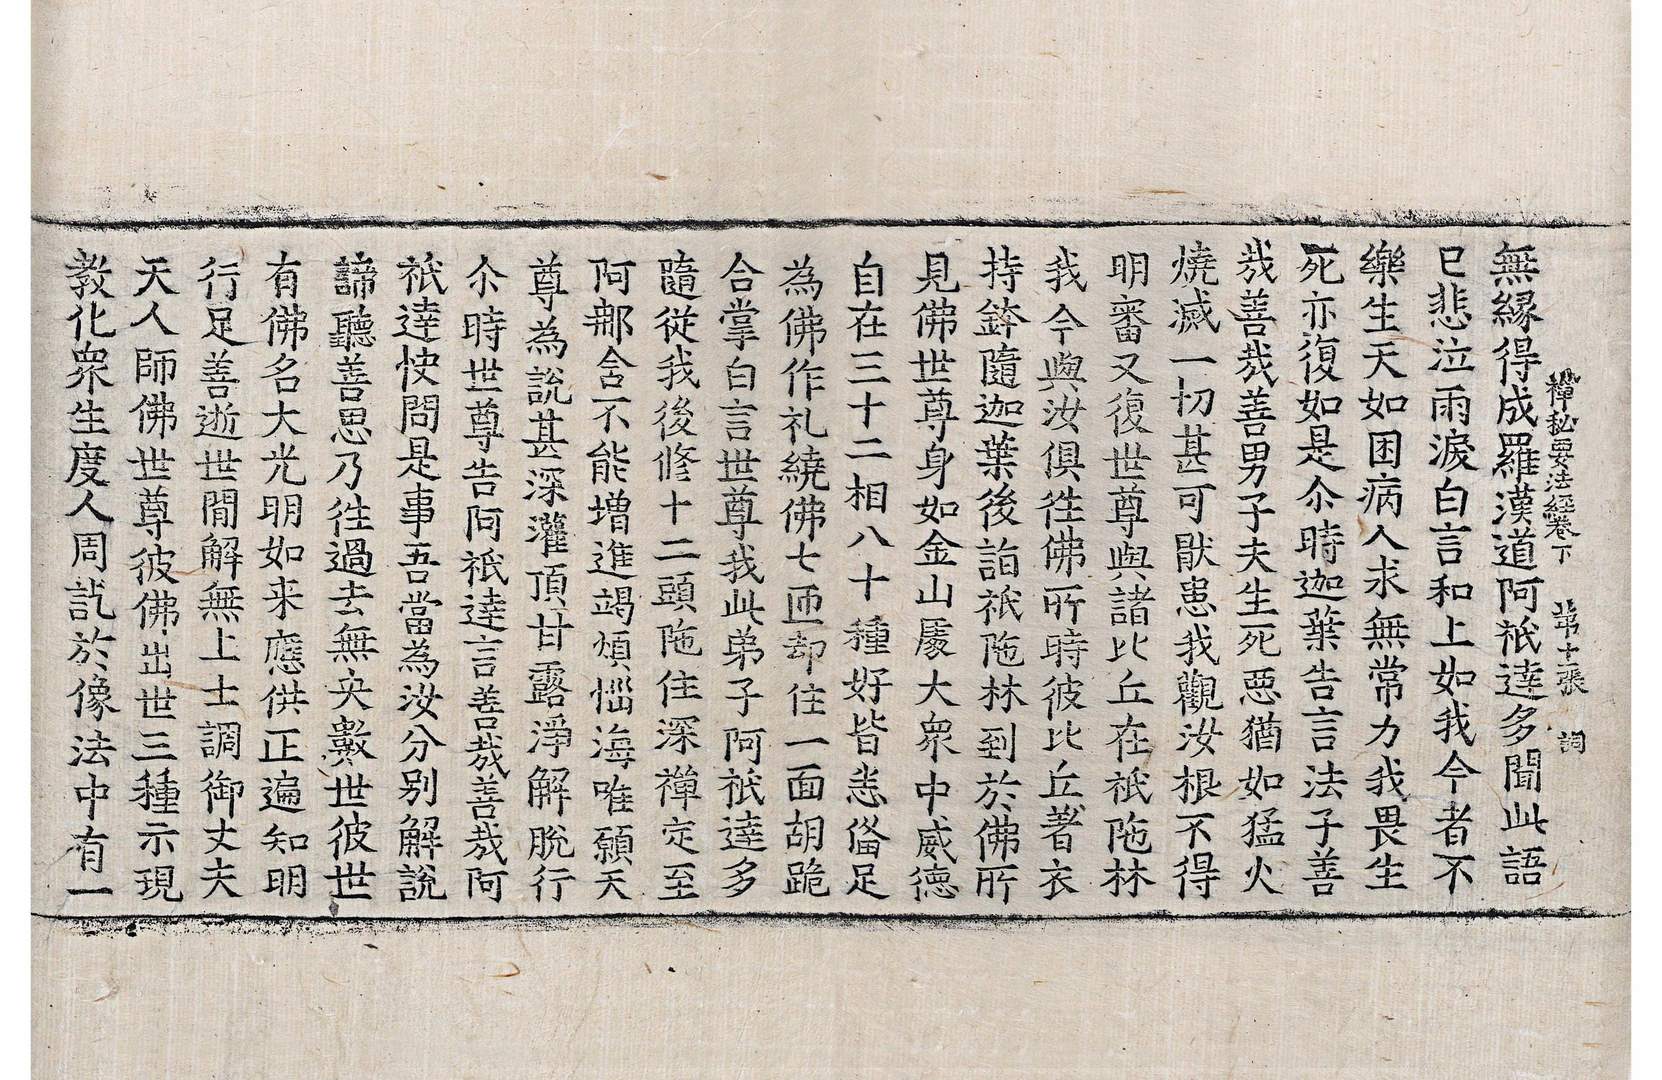 禪秘要法經卷下 第十張 詞
無緣得成羅漢道阿祇達多聞此語
已悲泣雨淚白言和上如我今者不
樂生天如困病人求無常力我畏生
死亦復如是尒時迦葉告言法子善
哉善哉善男子夫生死惡猶如猛火
燒滅一切甚可猒患我觀汝根不得
明審又復世尊與諸比丘在祇陁林
我今與汝俱徃佛所時彼比丘著衣
持鉢隨迦葉後詣祇陁林到於佛所
見佛世尊身如金山處大衆中威德
自在三十二相八十種好皆悉俻足
為佛作礼繞佛七匝却住一面胡跪
合掌白言世尊我此弟子阿祇達多
隨從我後修十二頭陁住深禪定至
阿那含不能增進竭煩惱海唯願天
尊為說甚深灌頂甘露淨解脫行
尒時世尊告阿祇達言善哉善哉阿
祇達快問是事吾當為汝分別解說
諦聽善思乃徃過去無央數世彼世
有佛名大光明如来應供正遍知明
行足善逝世間解無上士調御丈夫
天人師佛世尊彼佛出世三種示現
教化衆生度人周訖於像法中有一